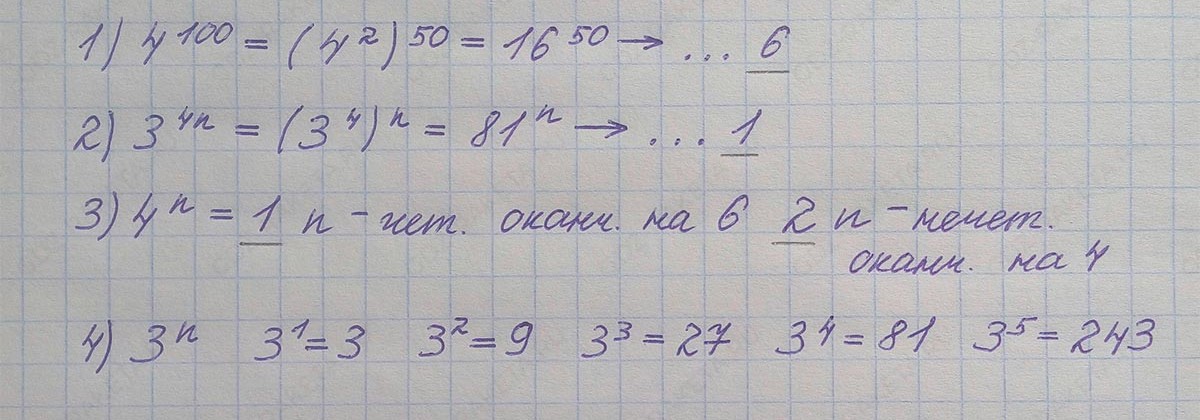 1) 4^100 = (4^2)^50 = 16^50 → ... 6
2) 3^4n = (3^4)^n = 81^n → ... 1
3) 4^n = 1 n - чет. оканч. на 6 2 n - нечет.
оканч. на 4
4) 3^n 3^1 = 3 3^2 = 9 3^3 = 27 3^4 = 81 3^5 = 243